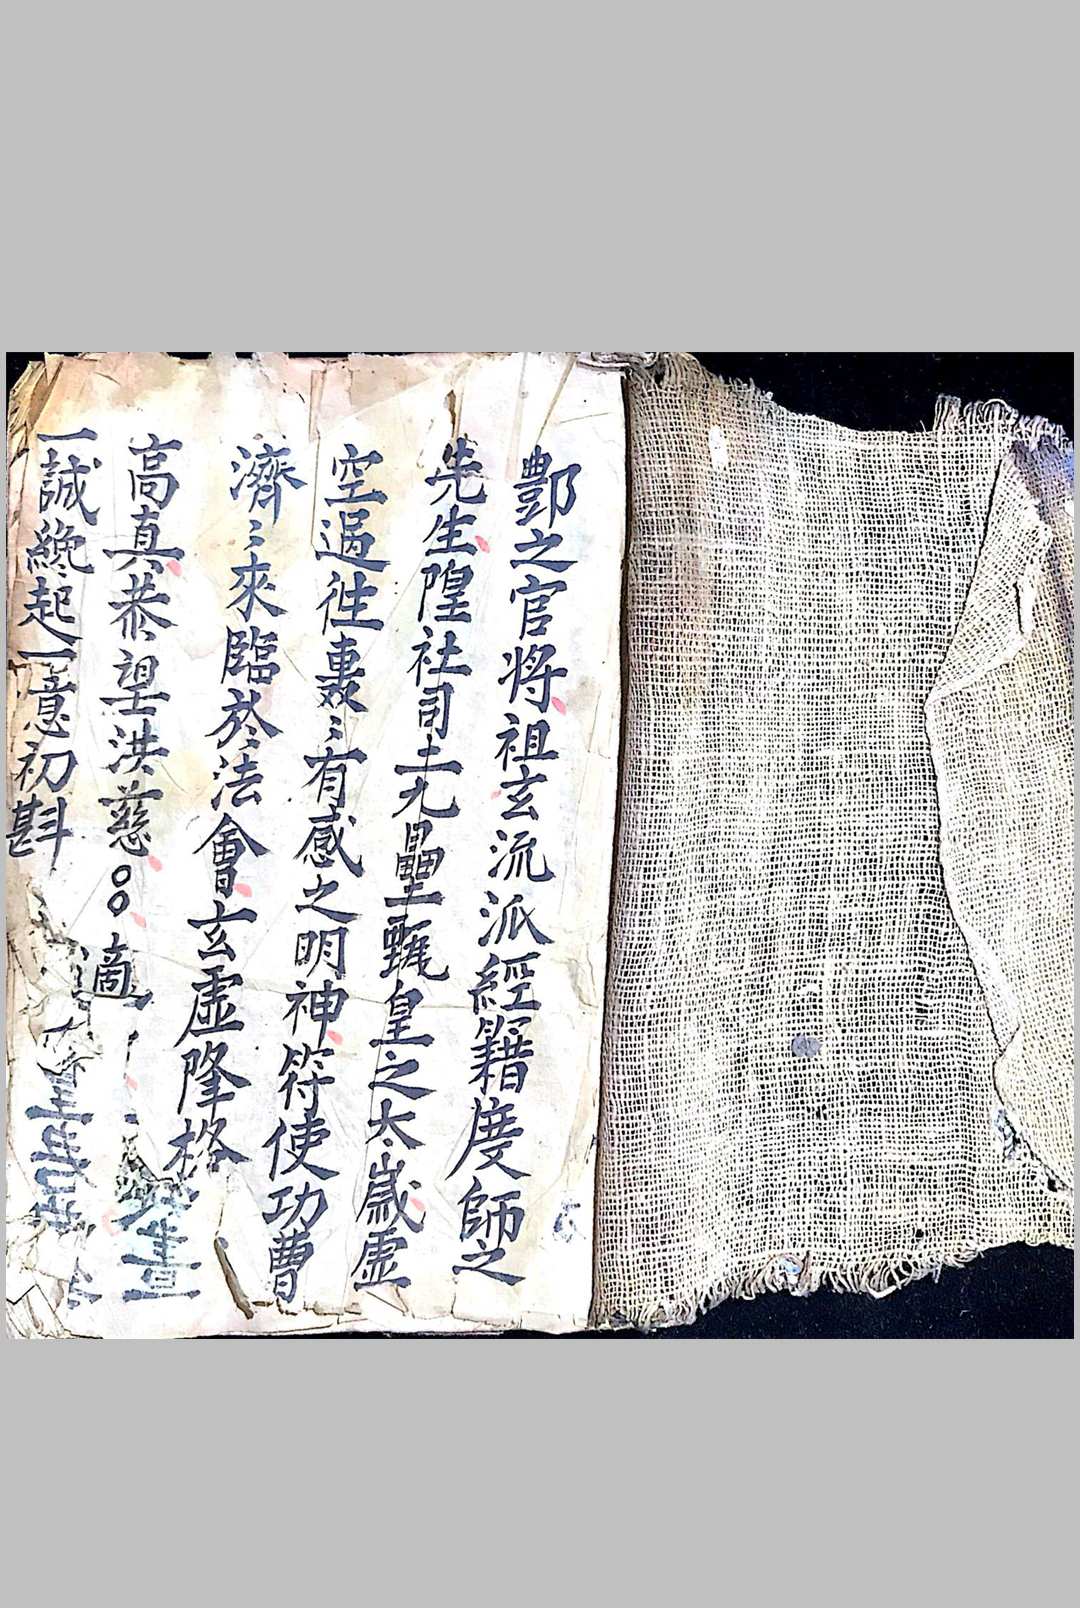 酆之官将祖玄流派經籍度師之
先生隍社司土九壘皇之太歲虛
空過往轟〻有感之明神符使功曹
濟〻來臨於法會玄虛隆格
高真恭望洪慈
一誠纔起一意初斟